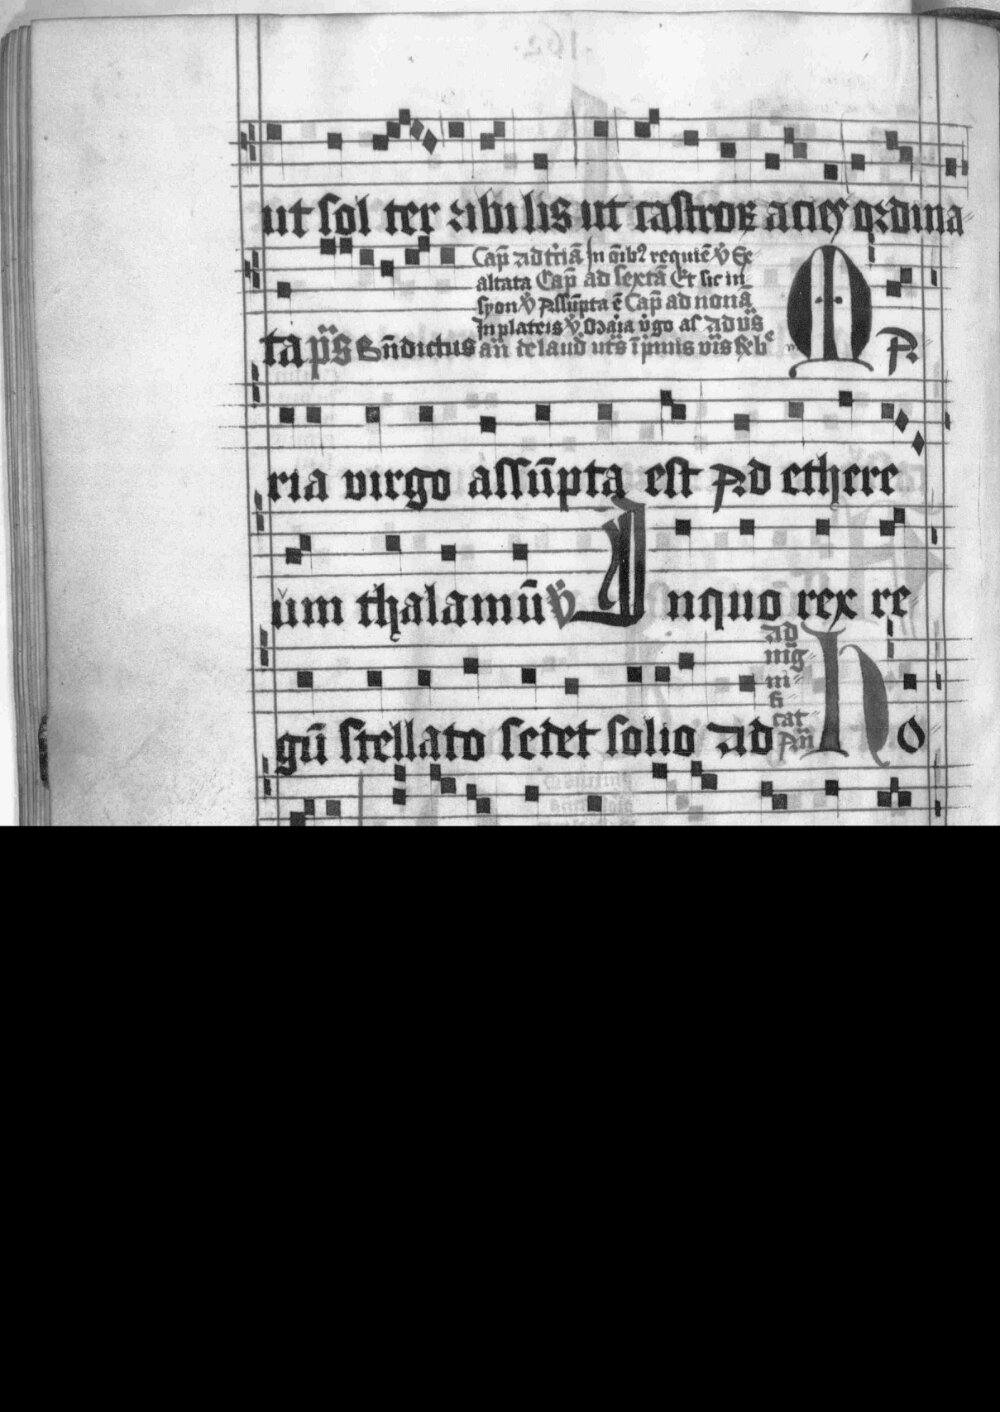 ut sol ter ribilis ut castroꝝ acies ordina
Cap̄ ad tr̄iā In oīb⁹ requiē ℣ Ex
altata Cap̄ ad sextā Et sic in
syon ℣ Assūpta ē Cap̄ ad nonā
In plateis ℣ Maīa v̄go a
ta p̄s Bn̄dictus an̄ de laud
M A
ria virgo assūpta est Ad ethere
um thalamū ℣ In quo rex re
gū stellato sedet solio Ad
mag
ni
fi
cat
An̄
H O